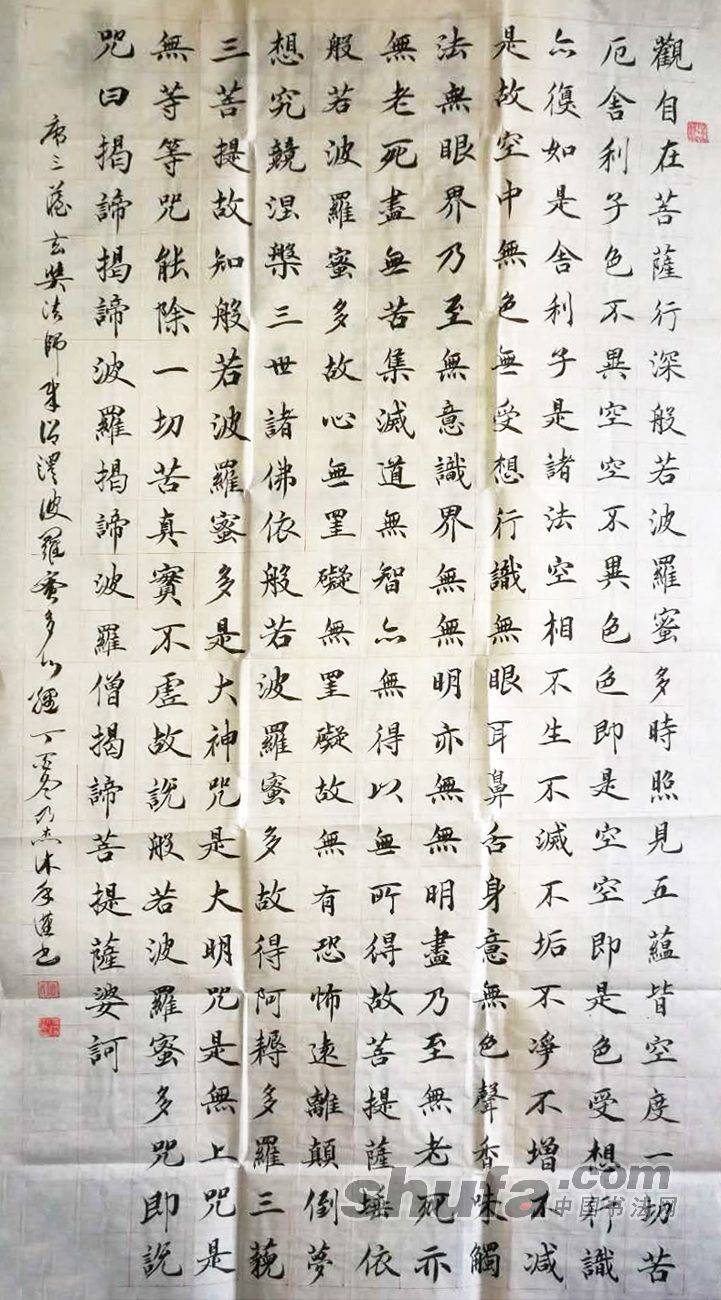 觀自在菩薩行深般若波羅蜜多時照見五蘊皆空度一切苦
厄舍利子色不異空空不異色色即是空空即是色受想行識
亦復如是舍利子是諸法空相不生不滅不垢不淨不增不減
是故空中無色無受想行識無眼耳鼻舌身意無色聲香味觸
法無眼界乃至無意識界無無明亦無無明盡乃至無老死亦
無老死盡無苦集滅道無智亦無得以無所得故菩提薩埵依
般若波羅蜜多故心無罣礙無罣礙故無有恐怖遠離顛倒夢
想究競涅槃三世諸佛依般若波羅蜜多故得阿耨多羅三藐
三菩提故知般若波羅蜜多是大神咒是大明咒是無上咒是
無等等咒能除一切苦真實不虛故說般若波羅蜜多咒即說
咒曰揭諦揭諦波羅揭諦波羅僧揭諦菩提薩婆訶
唐三藏玄奘法師奉詔譯波羅蜜多心經丁酉冬乃杰沐手謹書
shufa.com
中国书法网